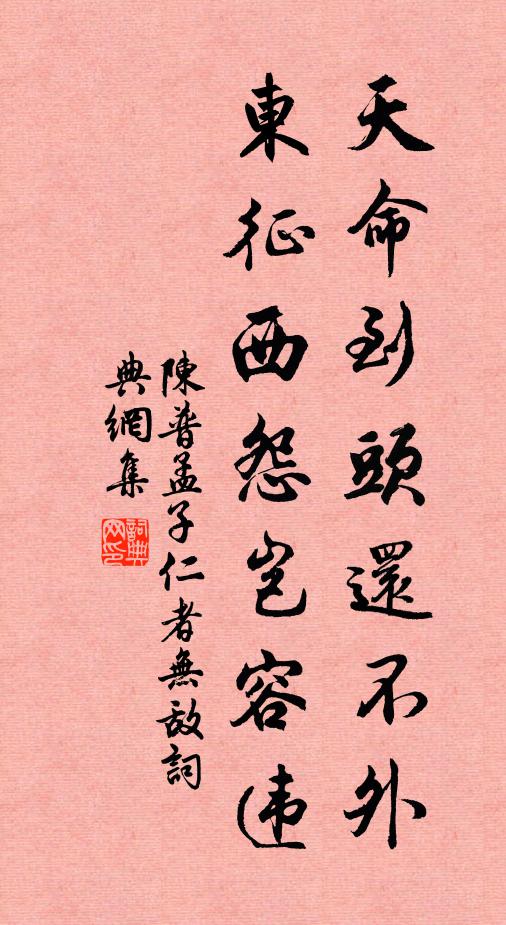 天命到頭還不外
東征西怨岂容违
陳普孟子仁者無敌詞
典網集
詞典网印